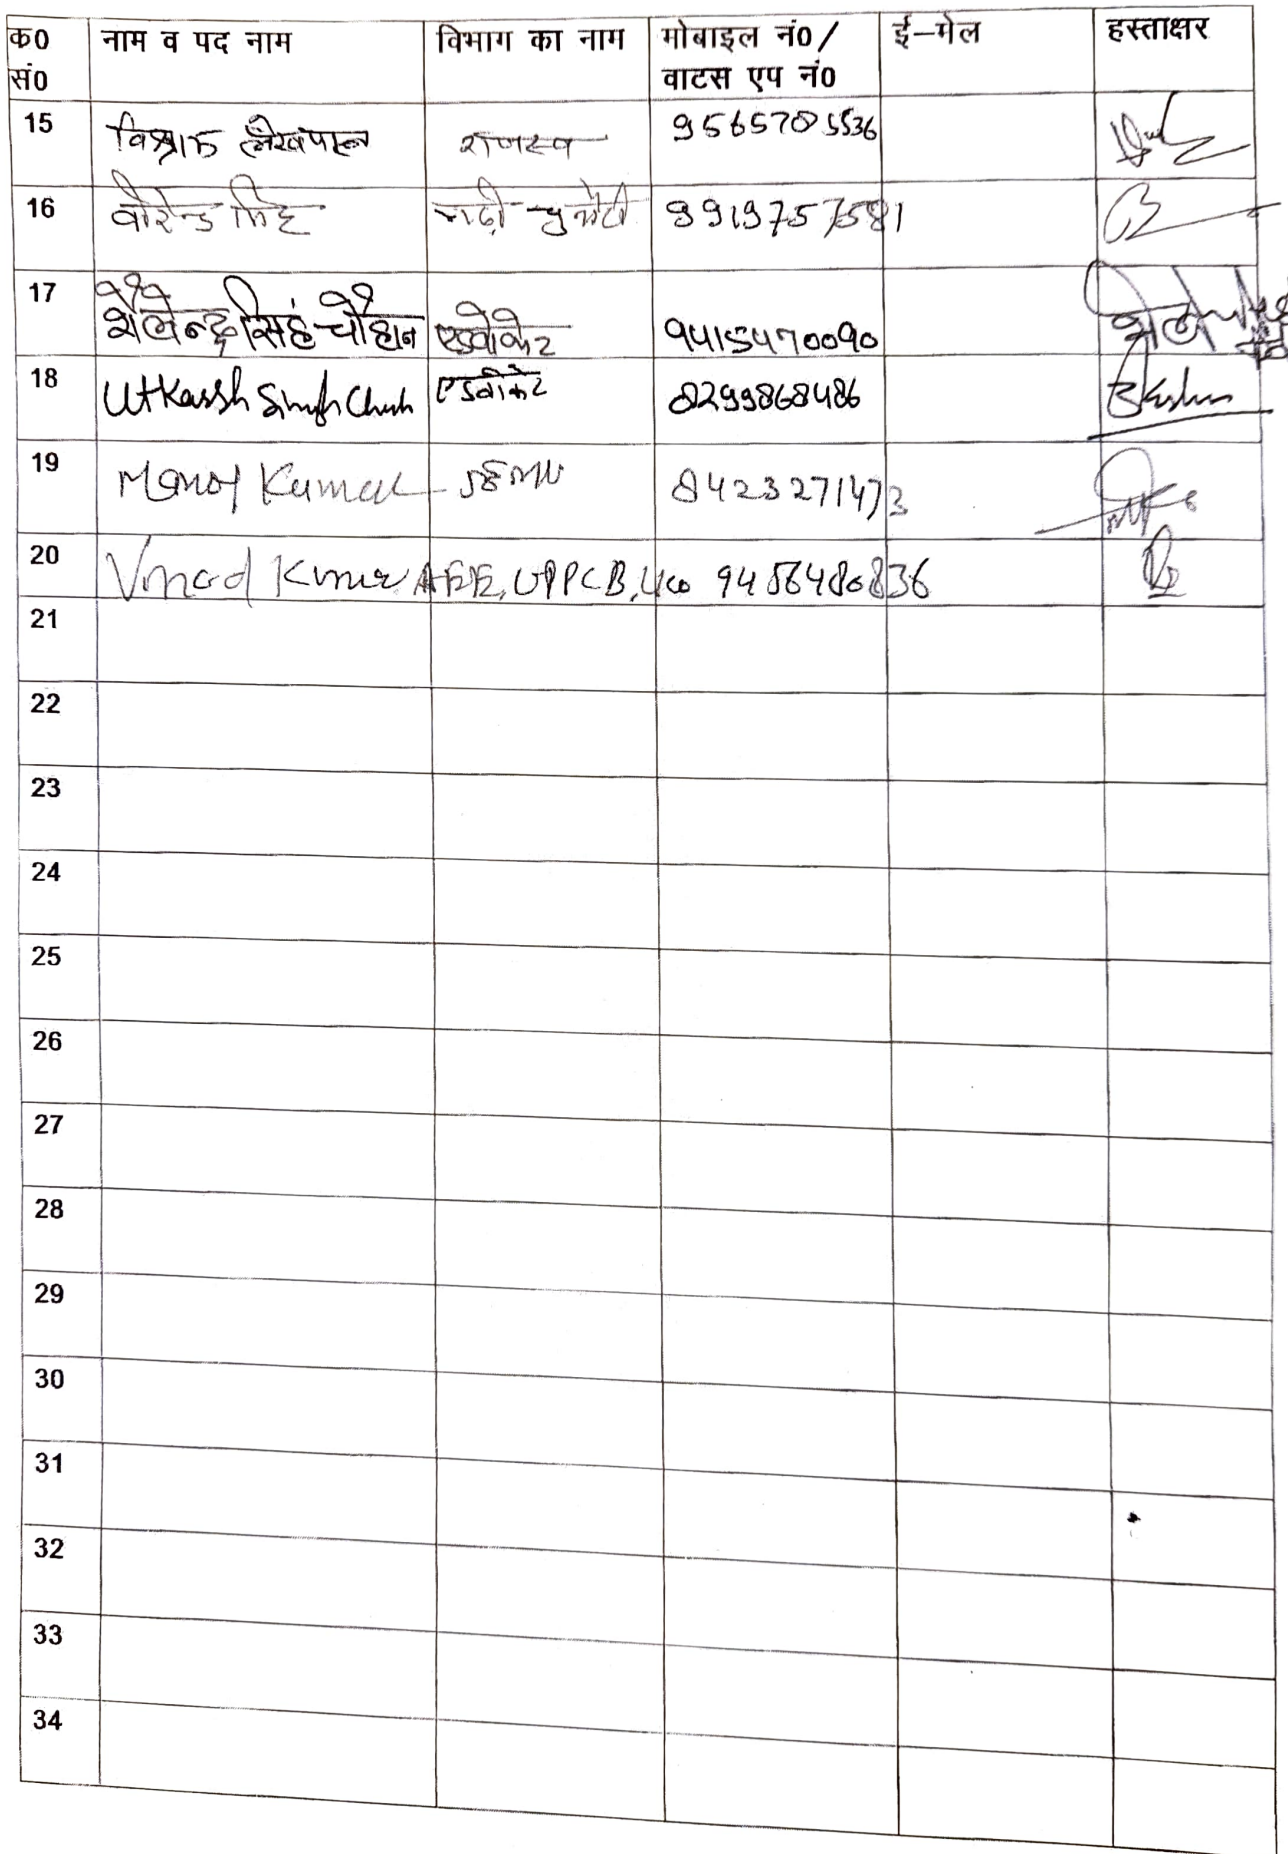 क0 सं0 नाम व पद नाम विभाग का नाम मोबाइल नं0/ वाटस एप नं0 ई-मेल हस्ताक्षर
15 विश्राम लेखपाल राजस्व 9565705536
16 वीरेन्द्र सिंह 9919757581
17 शैलेन्द्र सिहं चौहान एडवोकेट 9415470090
18 Utkarsh Singh Chauh एडवोकेट 8299868486
19 Manoj Kumar 8423271473
20 Vinod Kumar AEE, UPPCB, Lko 9456480836
21
22
23
24
25
26
27
28
29
30
31
32
33
34